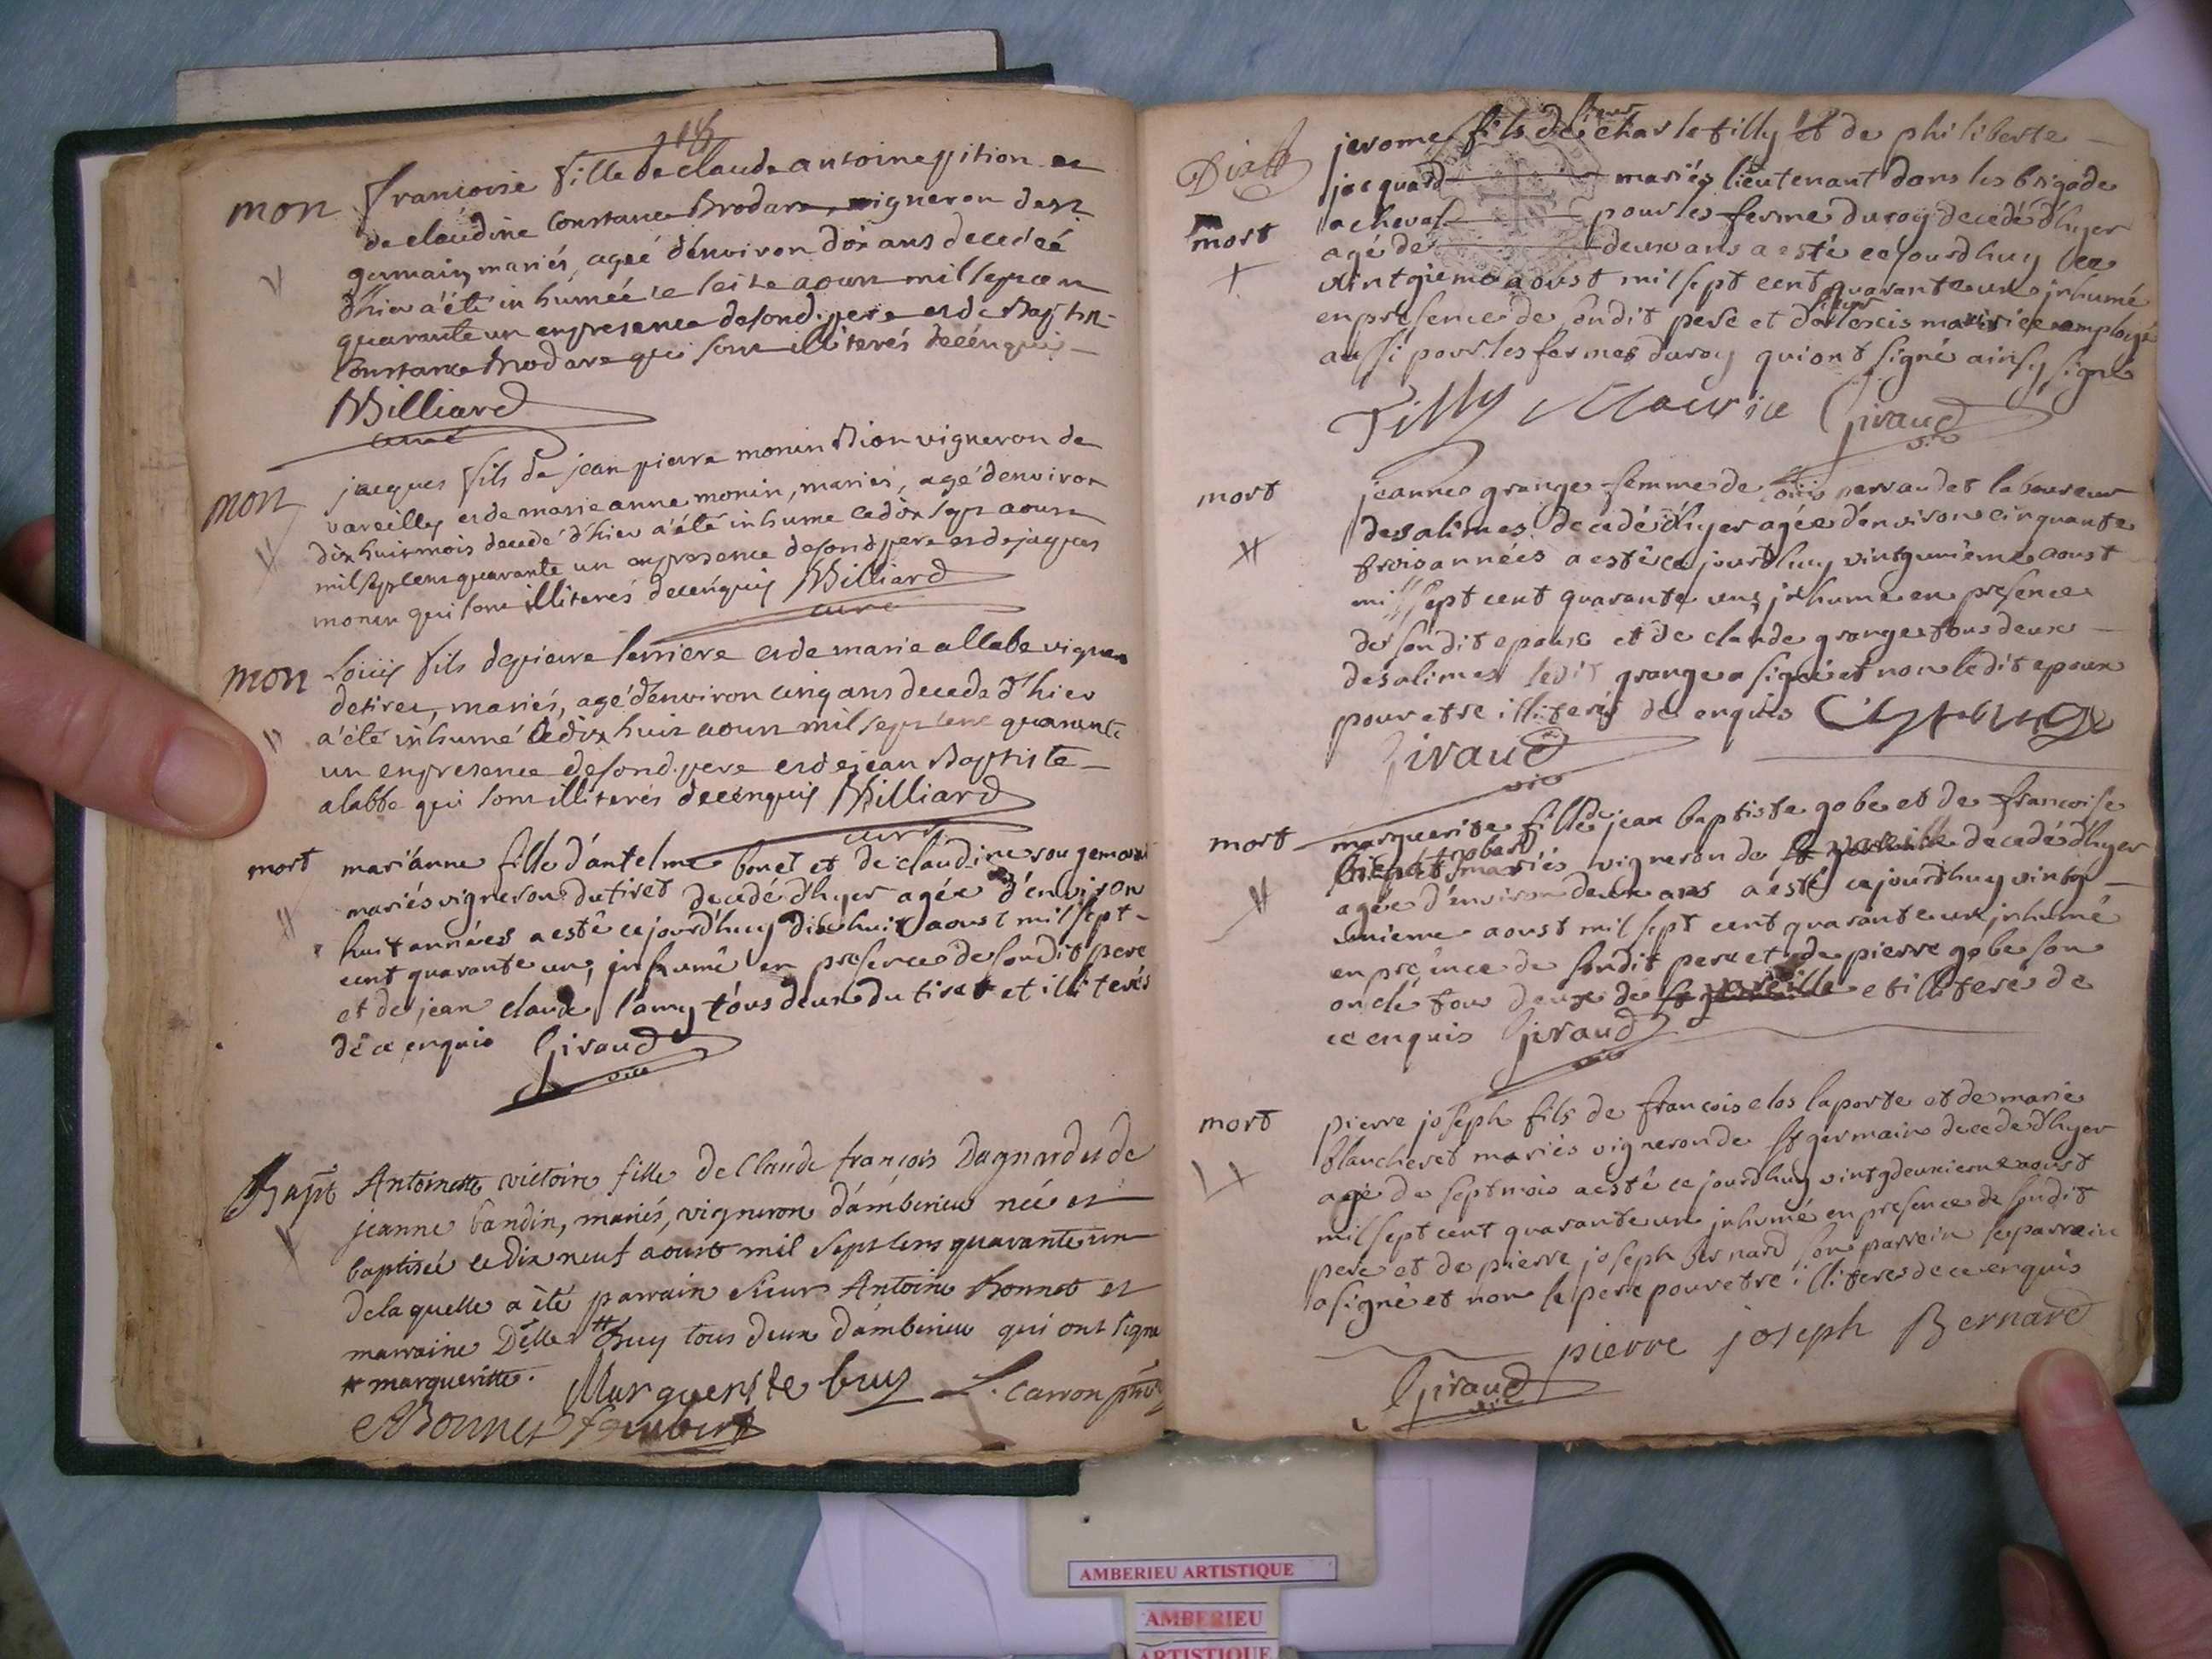 118
mort francoise fille de claude antoine pition et
de claudine constance Brodare, vigneron de st
germain, mariés, ageé d'environ dix ans decedeé
d'hier a'été inhumeé ce seize aoust mil sept cen
quarante un en presence de sond. pere et de Baptiste
Constance Brodare qui sont illiterés de ce enquis
Milliard
curé
mort jacques fils de jean pierre monin Dion vigneron de
vareilly et de marie anne monin, mariés, agé d'environ
dix huit mois decedé d'hier a'été inhumé ce dix sept aoust
mil sept cens quarante un en presence de sond pere et de jaques
monin qui sont illiterés de ce enquis Milliard
curé
mort Louis fils de pierre et de marie allabe vigneron
de tiret, mariés, agé d'environ cinq ans decedé d'hier
a'été inhumé ce dix huit aoust mil sept cens quarante
un en presence de sond. pere et de jean Baptiste
alabbe qui sont illiterés de ce enquis Milliard
curé
mort marianne fille d'antelme bonet et de claudine rougemont
mariés vigneron du tiret decedé d'hyer agée d'environ
huit années a esté ce jourd'huy dix huit aoust mil sept
cent quarante un, inhumé en presence de son dit pere
et de jean claude lamy tous deux du tiret et illiterés
de ce enquis Giraud
vic
Bapt Antoinette victoire fille de Claude francois Dagnard et de
jeanne bandin, mariés, vigneron d'amberieu née et
baptiseé ce dix neuf aoust mil sept cens quarante un
de laquelle a été parrain sieur Antoine Bonnet et
marraine Delle # buy tous deux d'amberieu qui ont signé
# margueritte. Marguerite buy L. carron
ABonnet joubert
jerome fils de sieur charle tilly et de philiberte
jacquard mariés lieutenant dans les brigade
mort a cheval pour les ferme du roy decedé d'hyer
agé de deux ans a esté ce jourdhuy le
vintgieme aoust mil sept cent quarante un inhumé
en presence de son dit pere et de sieur alexcis maurice employé
aussi pour les fermes du roy qui ont signé ainsy signé
Tilly Maurice Giraud
vic
mort jeanne grange femme de louis perraudet laboureur
des alimes decedé d'hyer agée d'environ cinquante
trois années a esté ce jourdhuy vintgunieme aoust
mil sept cent quarante un, inhumé en presence
de son dit epoux et de claude grange tous deux
des alimes ledit grange a signé et non le dit epoux
pour etre illiteré de ce enquis C grange
Giraud
vic
mort marguerite fille de jean baptiste gobe et de francoise
mariés vigneron de decedé d'hyer
agée d'environ deux ans a esté ce jourdhuy vintg
unieme aoust mil sept cent quarante un inhumé
en presence de son dit pere et de pierre gobe son
oncle tous deux de vareille et illiteré de
ce enquis Giraud
vic
mort pierre joseph fils de francois clos laporte et de marie
blancheret mariés vigneron de st germain decedé d'hyer
agé de sept mois a esté ce jourdhuy vintgdeuxieme aoust
mil sept cent quarante un inhumé en presence de son dit
pere et de pierre joseph bernard son parrein le parrein
a signé et non le pere pour etre illiteré de ce enquis
pierre joseph Bernard
Giraud
vic
AMBERIEU ARTISTIQUE
AMBERIEU
ARTISTIQUE